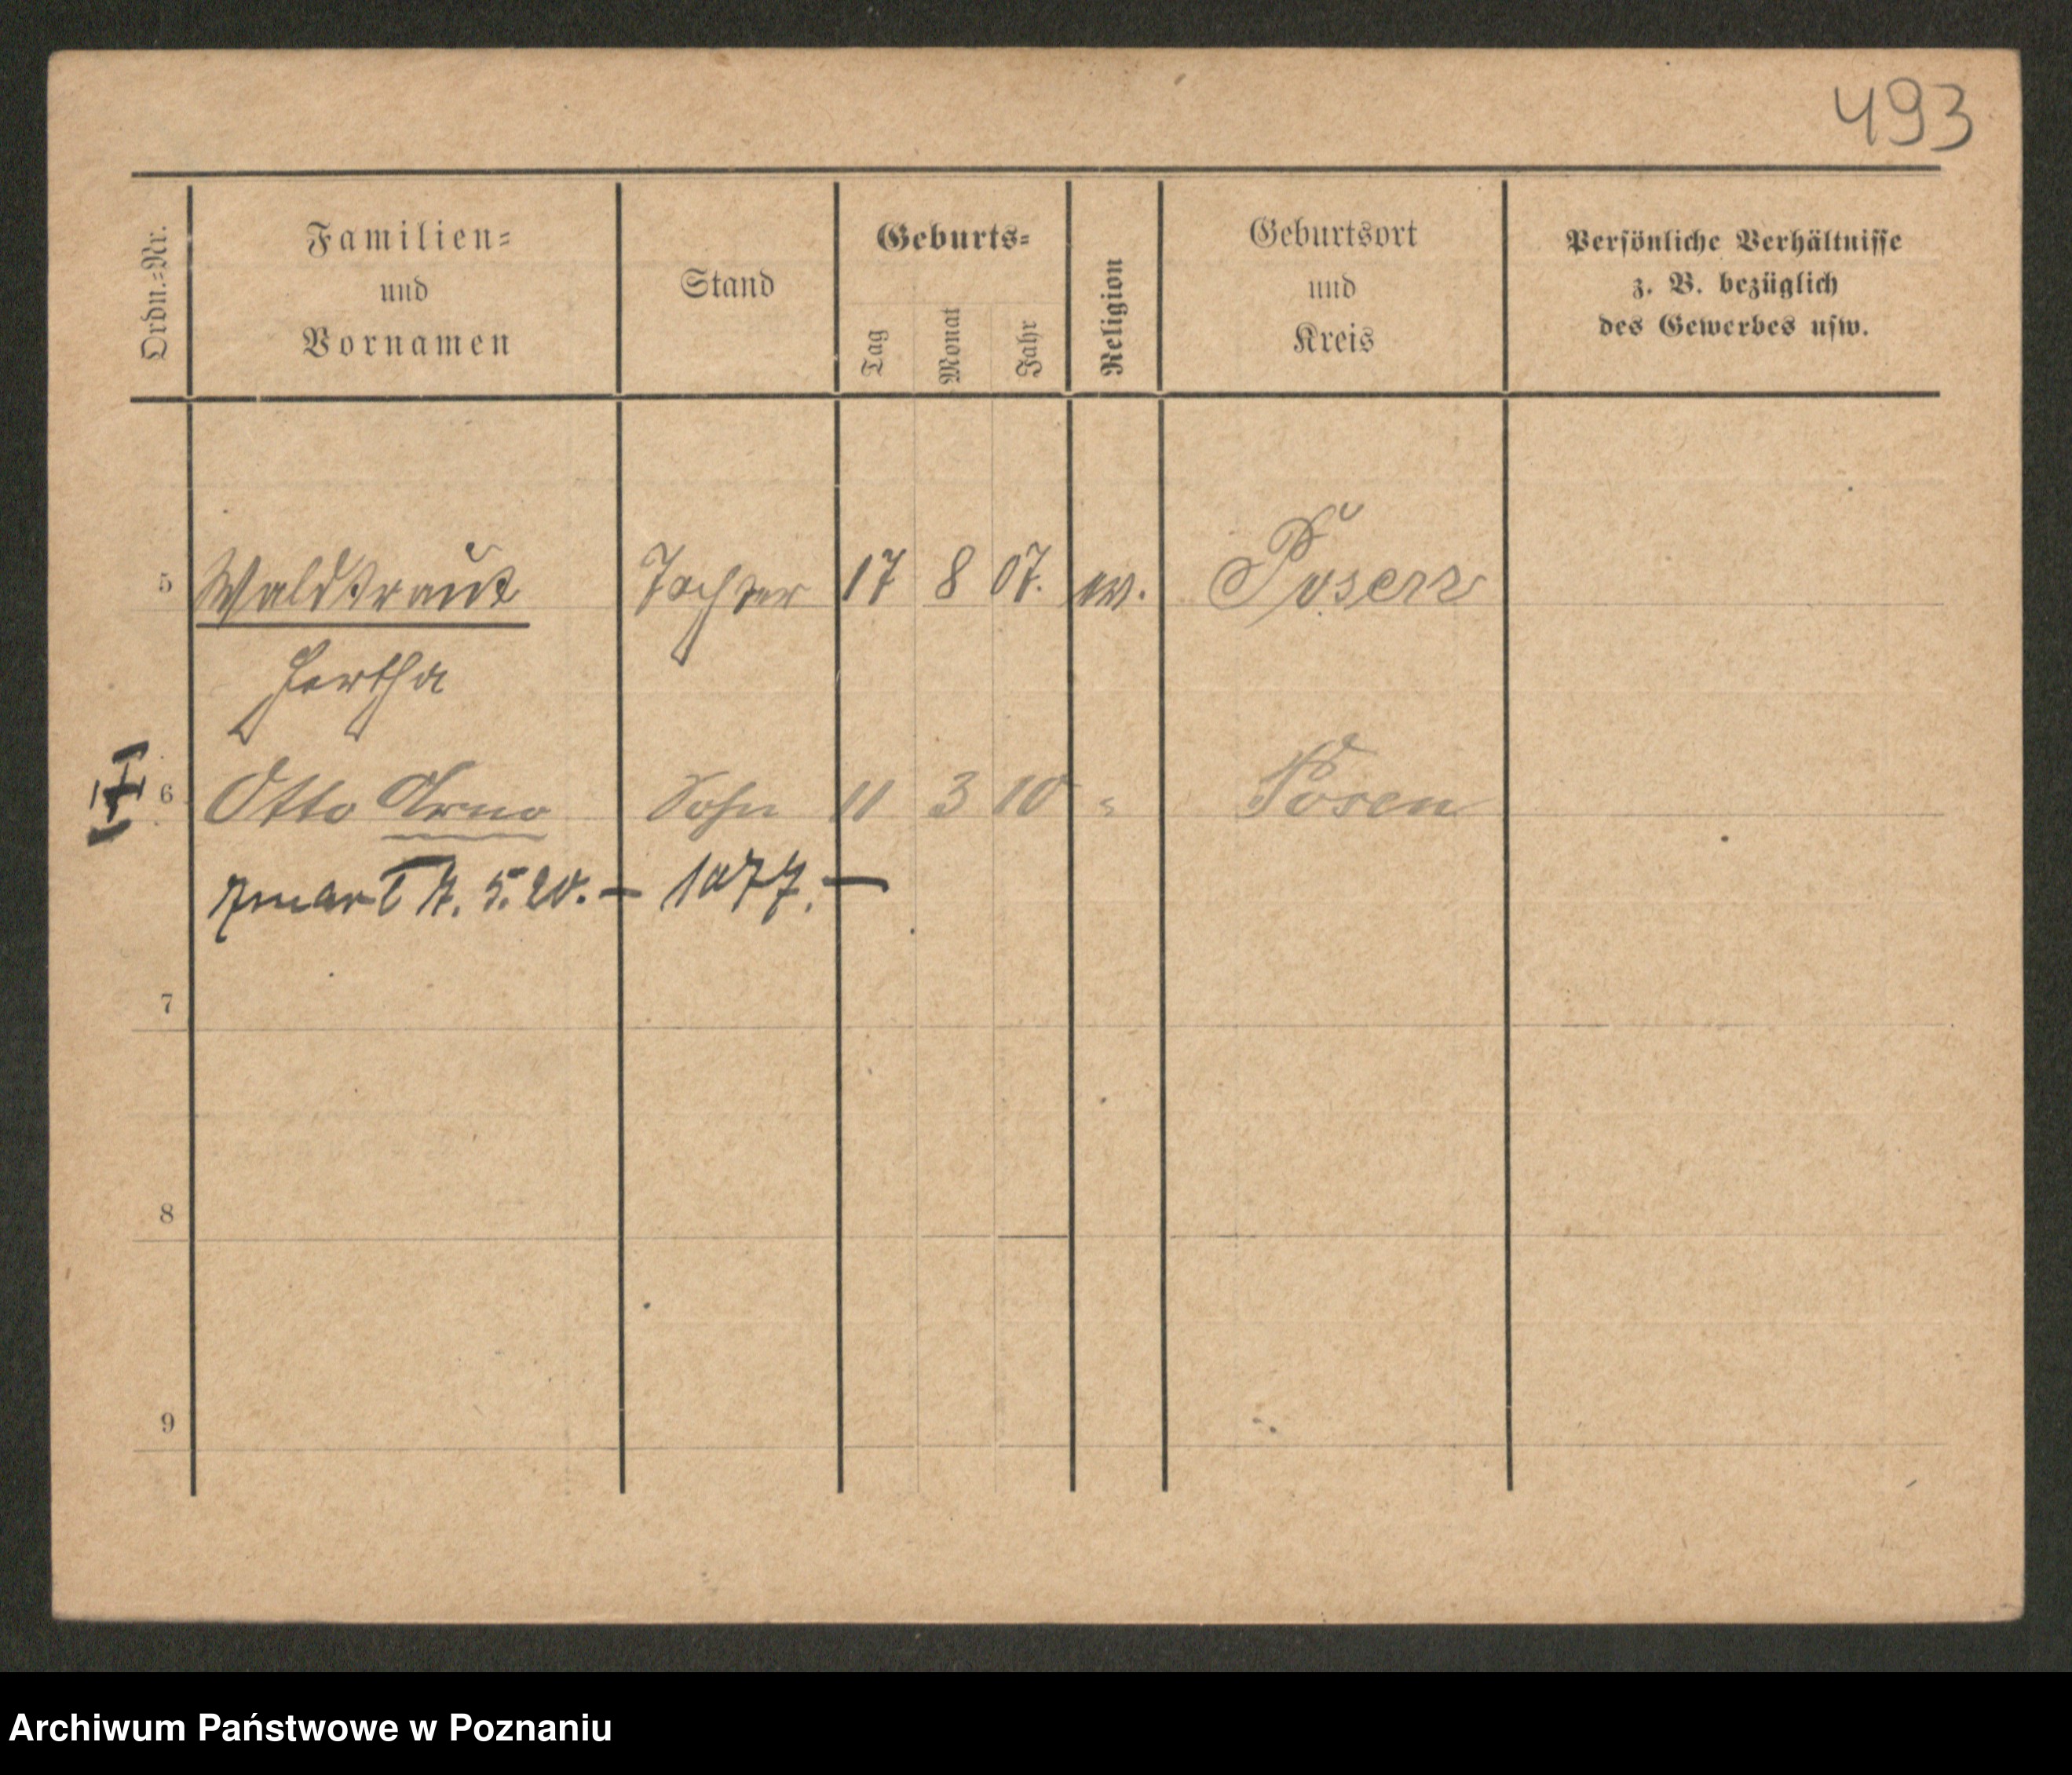 493
Ordn.-Nr. Familien- und Vornamen Stand Geburts- Tag Monat Jahr Religion Geburtsort und Kreis Persönliche Verhältnisse z. B. bezüglich des Gewerbes usw.
5 Waldtraut Tochter 17 8 07. ev. Posen
Hertha
6 Otto Arno Sohn 11 3 10 " Posen
zmarł 7. 5. 20. – 1077. –
7
8
9
Archiwum Państwowe w Poznaniu